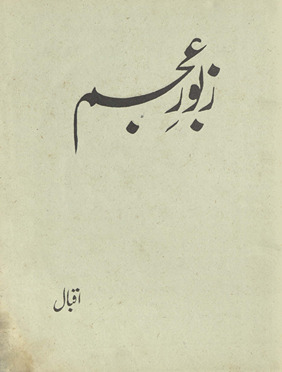 زبورِ عجم
اقبال